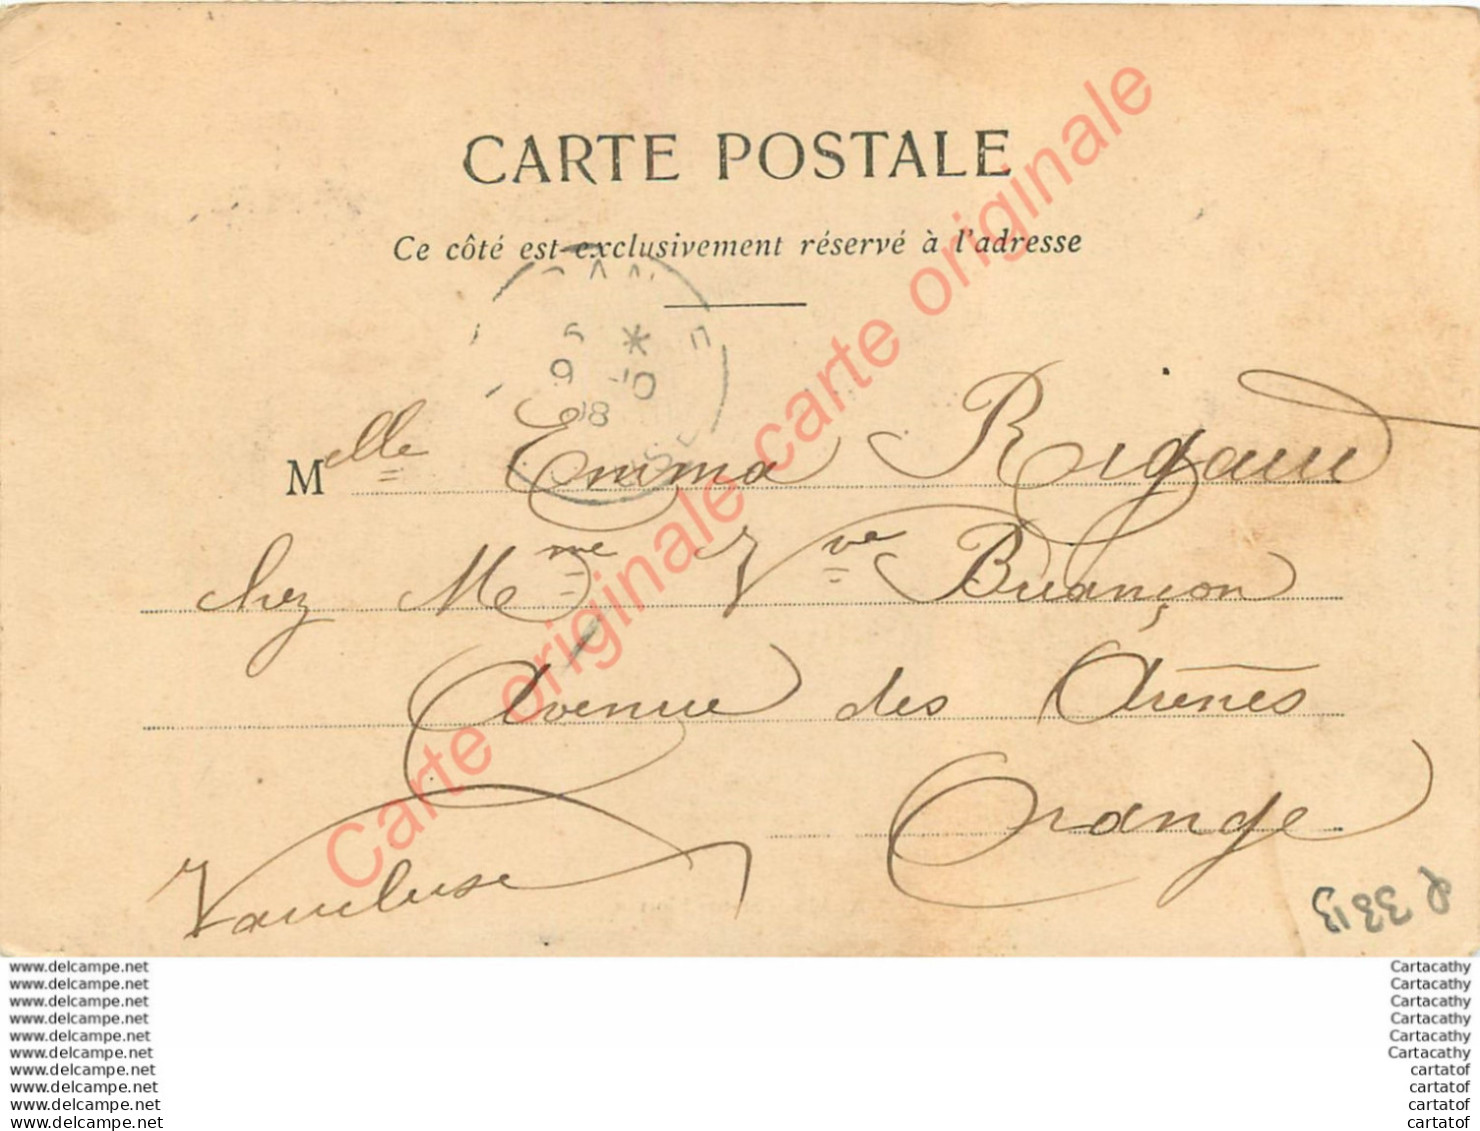 CARTE POSTALE
Ce côté est exclusivement réservé à l'adresse
Melle Emma Rigaud
chez Mme Vve Briançon
Avenue des Arènes
Orange
Vaucluse
Carte originale carte originale
www.delcampe.net Cartacathy
www.delcampe.net Cartacathy
www.delcampe.net Cartacathy
www.delcampe.net Cartacathy
www.delcampe.net Cartacathy
www.delcampe.net Cartacathy
www.delcampe.net cartatof
www.delcampe.net cartatof
www.delcampe.net cartatof
www.delcampe.net cartatof